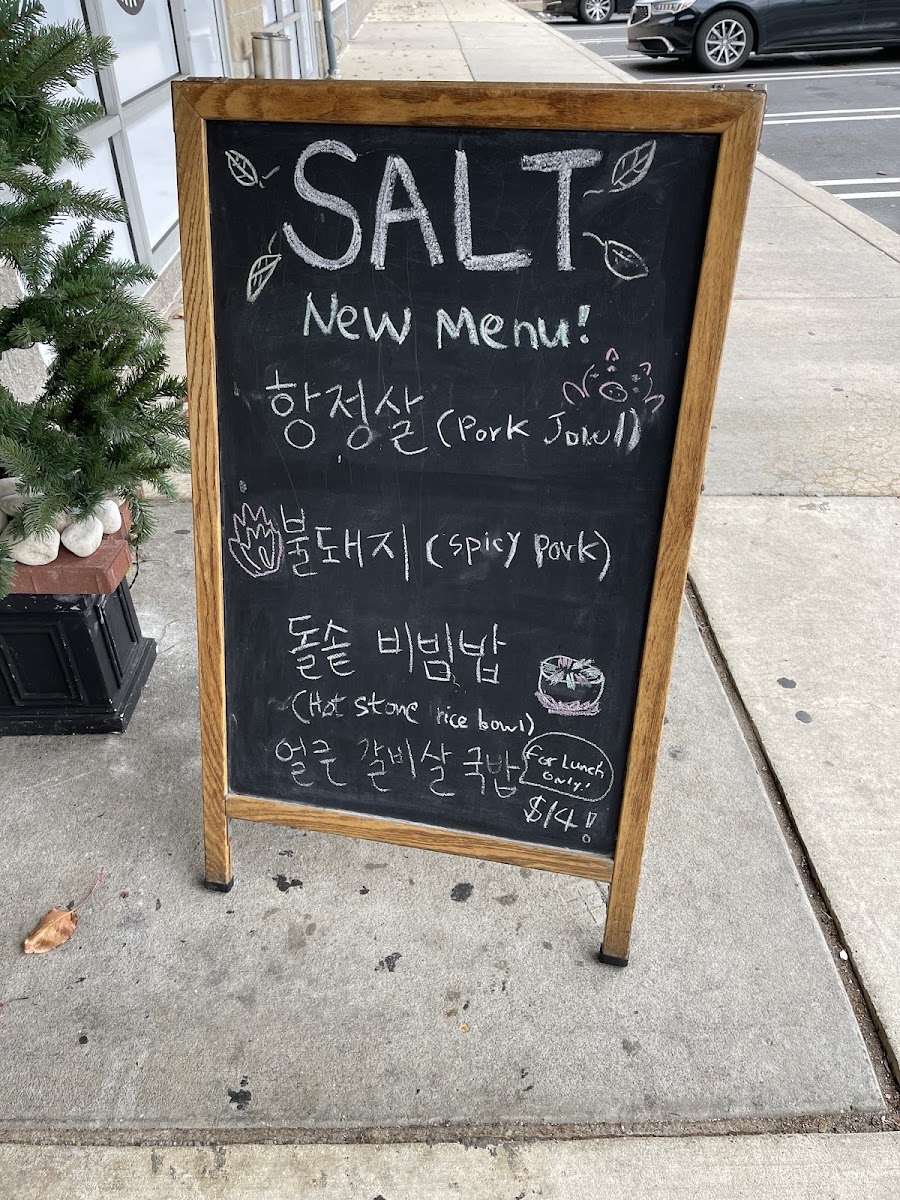 SALT
New Menu!
항정살 (Pork Jowl)
불돼지 (spicy pork)
돌솥 비빔밥
(Hot stone rice bowl)
얼큰 갈비살 국밥
For Lunch
only!
$14!